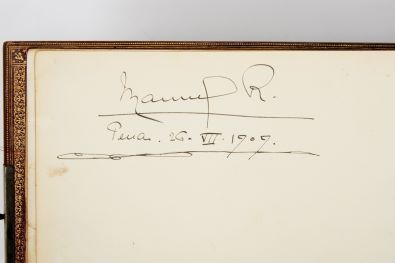 Manuel R.
Pena. 26. VII. 1909.